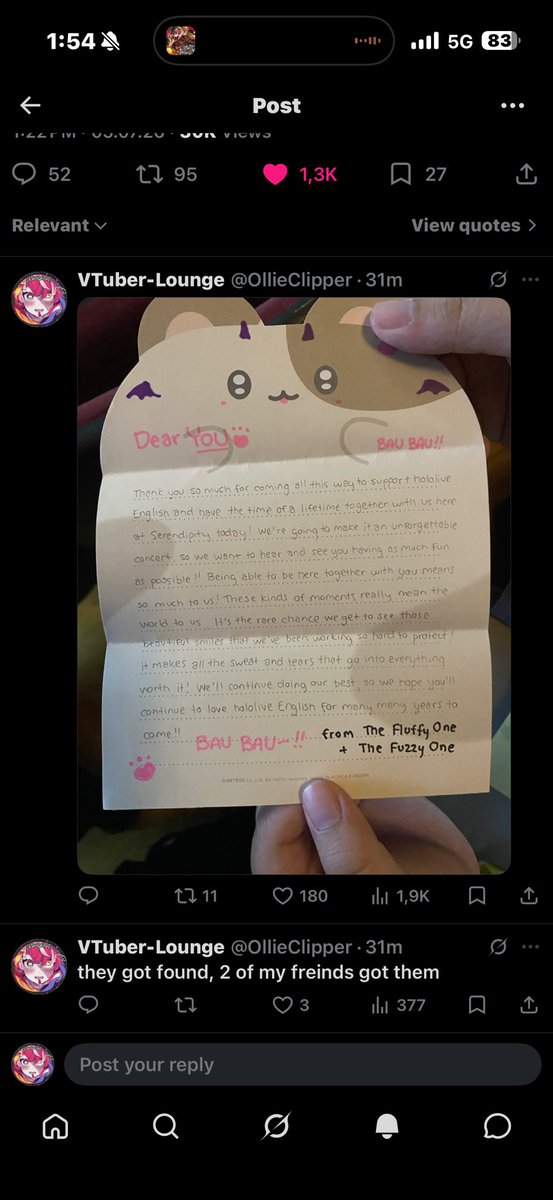 1:54
5G
83
Post
52
95
1,3K
27
Relevant
View quotes
VTuber-Lounge @OllieClipper · 31m
Dear YOU
BAU BAU!!
Thank you so much for coming all this way to support hololive
English and have the time of a lifetime together with us here
at Serendipity today! We're going to make it an unforgettable
concert, so we want to hear and see you having as much fun
as possible!! Being able to be here together with you means
so much to us! These kinds of moments really mean the
world to us. It's the rare chance we get to see those
beautiful smiles that we've been working so hard to protect!
It makes all the sweat and tears that go into everything
worth it! We'll continue doing our best, so we hope you'll
continue to love hololive English for many many years to
come!!
BAU BAU~!!
from The Fluffy One
+ The Fuzzy One
11
180
1,9K
VTuber-Lounge @OllieClipper · 31m
they got found, 2 of my freinds got them
3
377
Post your reply